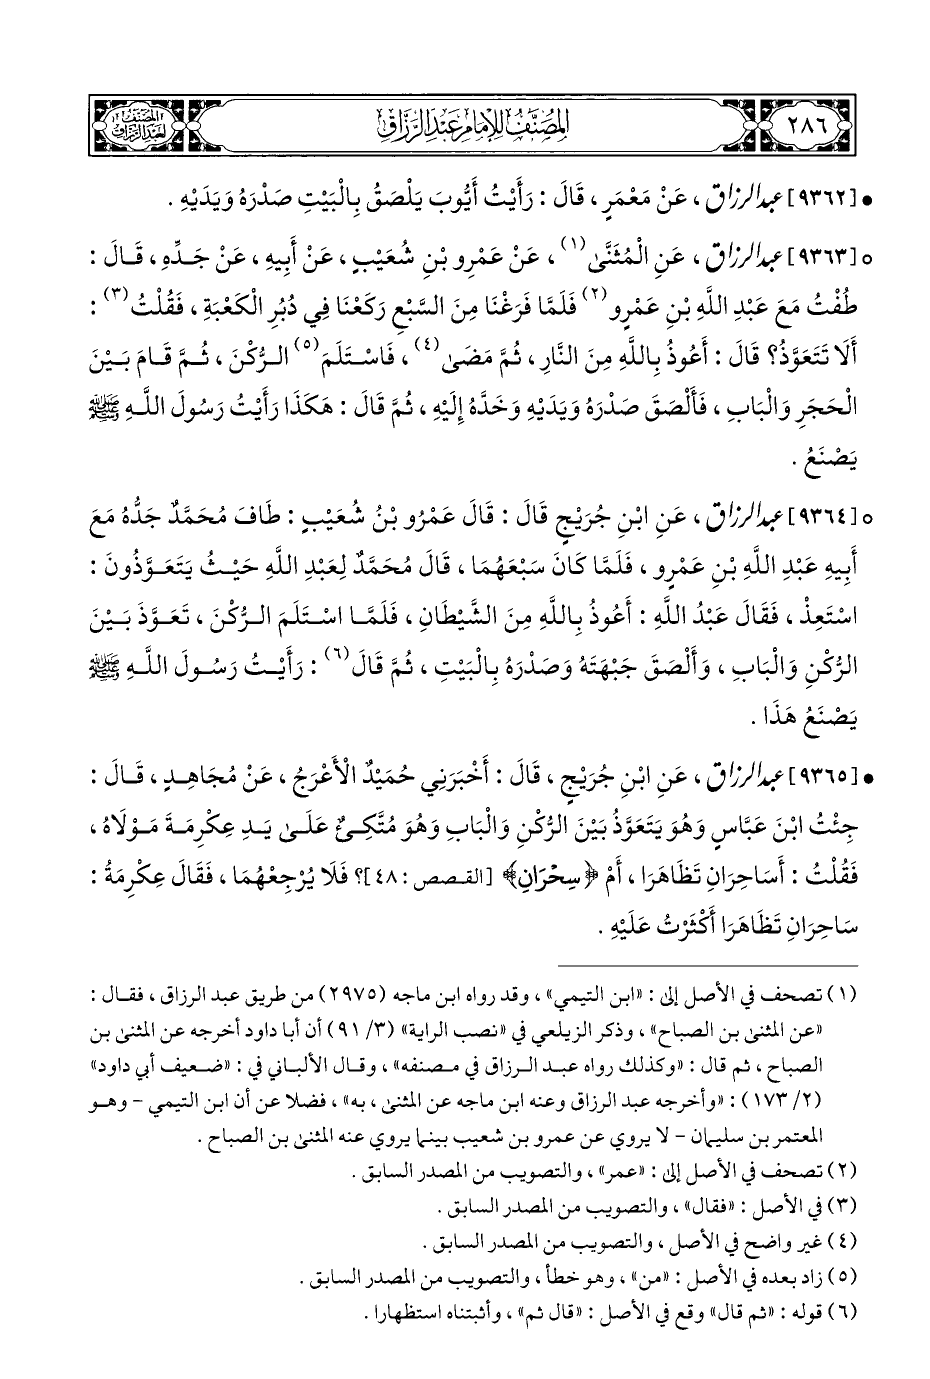 ٢٨٦
المصنف للإمام عبد الرزاق
المصنف
لعبد الرزاق
• [٩٣٦٢] عبد الرزاق ، عَنْ مَعْمَرٍ ، قَالَ : رَأَيْتُ أَيُّوبَ يَلْصَقُ بِالْبَيْتِ صَدْرَهُ وَيَدَيْهِ .
○ [٩٣٦٣] عبد الرزاق ، عَنِ الْمُثَنَّىٰ (١) ، عَنْ عَمْرِو بْنِ شُعَيْبٍ ، عَنْ أَبِيهِ ، عَنْ جَدِّهِ ، قَالَ :
طُفْتُ مَعَ عَبْدِ اللَّهِ بْنِ عَمْرٍو (٢) فَلَمَّا فَرَغْنَا مِنَ السَّبْعِ رَكَعْنَا فِي دُبُرِ الْكَعْبَةِ ، فَقُلْتُ (٣) :
أَلَا تَتَعَوَّذُ؟ قَالَ : أَعُوذُ بِاللَّهِ مِنَ النَّارِ ، ثُمَّ مَضَىٰ (٤) ، فَاسْتَلَمَ (٥) الرُّكْنَ ، ثُمَّ قَامَ بَيْنَ
الْحَجَرِ وَالْبَابِ ، فَأَلْصَقَ صَدْرَهُ وَيَدَيْهِ وَخَدَّهُ إِلَيْهِ ، ثُمَّ قَالَ : هَكَذَا رَأَيْتُ رَسُولَ اللَّهِ ﷺ
يَصْنَعُ .
○ [٩٣٦٤] عبد الرزاق ، عَنِ ابْنِ جُرَيْجٍ قَالَ : قَالَ عَمْرُو بْنُ شُعَيْبٍ : طَافَ مُحَمَّدٌ جَدُّهُ مَعَ
أَبِيهِ عَبْدِ اللَّهِ بْنِ عَمْرٍو ، فَلَمَّا كَانَ سَبْعَهُمَا ، قَالَ مُحَمَّدٌ لِعَبْدِ اللَّهِ حَيْثُ يَتَعَوَّذُونَ :
اسْتَعِذْ ، فَقَالَ عَبْدُ اللَّهِ : أَعُوذُ بِاللَّهِ مِنَ الشَّيْطَانِ ، فَلَمَّا اسْتَلَمَ الرُّكْنَ ، تَعَوَّذَ بَيْنَ
الرُّكْنِ وَالْبَابِ ، وَأَلْصَقَ جَبْهَتَهُ وَصَدْرَهُ بِالْبَيْتِ ، ثُمَّ قَالَ (٦) : رَأَيْتُ رَسُولَ اللَّهِ ﷺ
يَصْنَعُ هَذَا .
• [٩٣٦٥] عبد الرزاق ، عَنِ ابْنِ جُرَيْجٍ ، قَالَ : أَخْبَرَنِي حُمَيْدٌ الْأَعْرَجُ ، عَنْ مُجَاهِدٍ ، قَالَ :
جِئْتُ ابْنَ عَبَّاسٍ وَهُوَ يَتَعَوَّذُ بَيْنَ الرُّكْنِ وَالْبَابِ وَهُوَ مُتَّكِئٌ عَلَىٰ يَدِ عِكْرِمَةَ مَوْلَاهُ ،
فَقُلْتُ : أَسَاحِرَانِ تَظَاهَرَا ، أَمْ ﴿سِحْرَانِ﴾ [القصص : ٤٨]؟ فَلَا يُرْجِعْهُمَا ، فَقَالَ عِكْرِمَةُ :
سَاحِرَانِ تَظَاهَرَا أَكْثَرْتُ عَلَيْهِ .
(١) تصحف في الأصل إلى : «ابن التيمي» ، وقد رواه ابن ماجه (٢٩٧٥) من طريق عبد الرزاق ، فقال :
«عن المثنى بن الصباح» ، وذكر الزيلعي في «نصب الراية» (٣/ ٩١) أن أبا داود أخرجه عن المثنى بن
الصباح ، ثم قال : «وكذلك رواه عبد الرزاق في مصنفه» ، وقال الألباني في : «ضعيف أبي داود»
(٢/ ١٧٣) : «وأخرجه عبد الرزاق وعنه ابن ماجه عن المثنى ، به» ، فضلا عن أن ابن التيمي - وهو
المعتمر بن سليمان - لا يروي عن عمرو بن شعيب بينما يروي عنه المثنى بن الصباح .
(٢) تصحف في الأصل إلى : «عمر» ، والتصويب من المصدر السابق .
(٣) في الأصل : «فقال» ، والتصويب من المصدر السابق .
(٤) غير واضح في الأصل ، والتصويب من المصدر السابق .
(٥) زاد بعده في الأصل : «من» ، وهو خطأ ، والتصويب من المصدر السابق .
(٦) قوله : «ثم قال» وقع في الأصل : «قال ثم» ، وأثبتناه استظهارا .